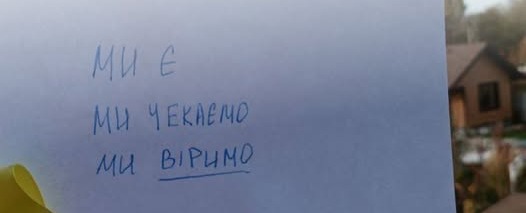 МИ Є
МИ ЧЕКАЄМО
МИ ВІРИМО